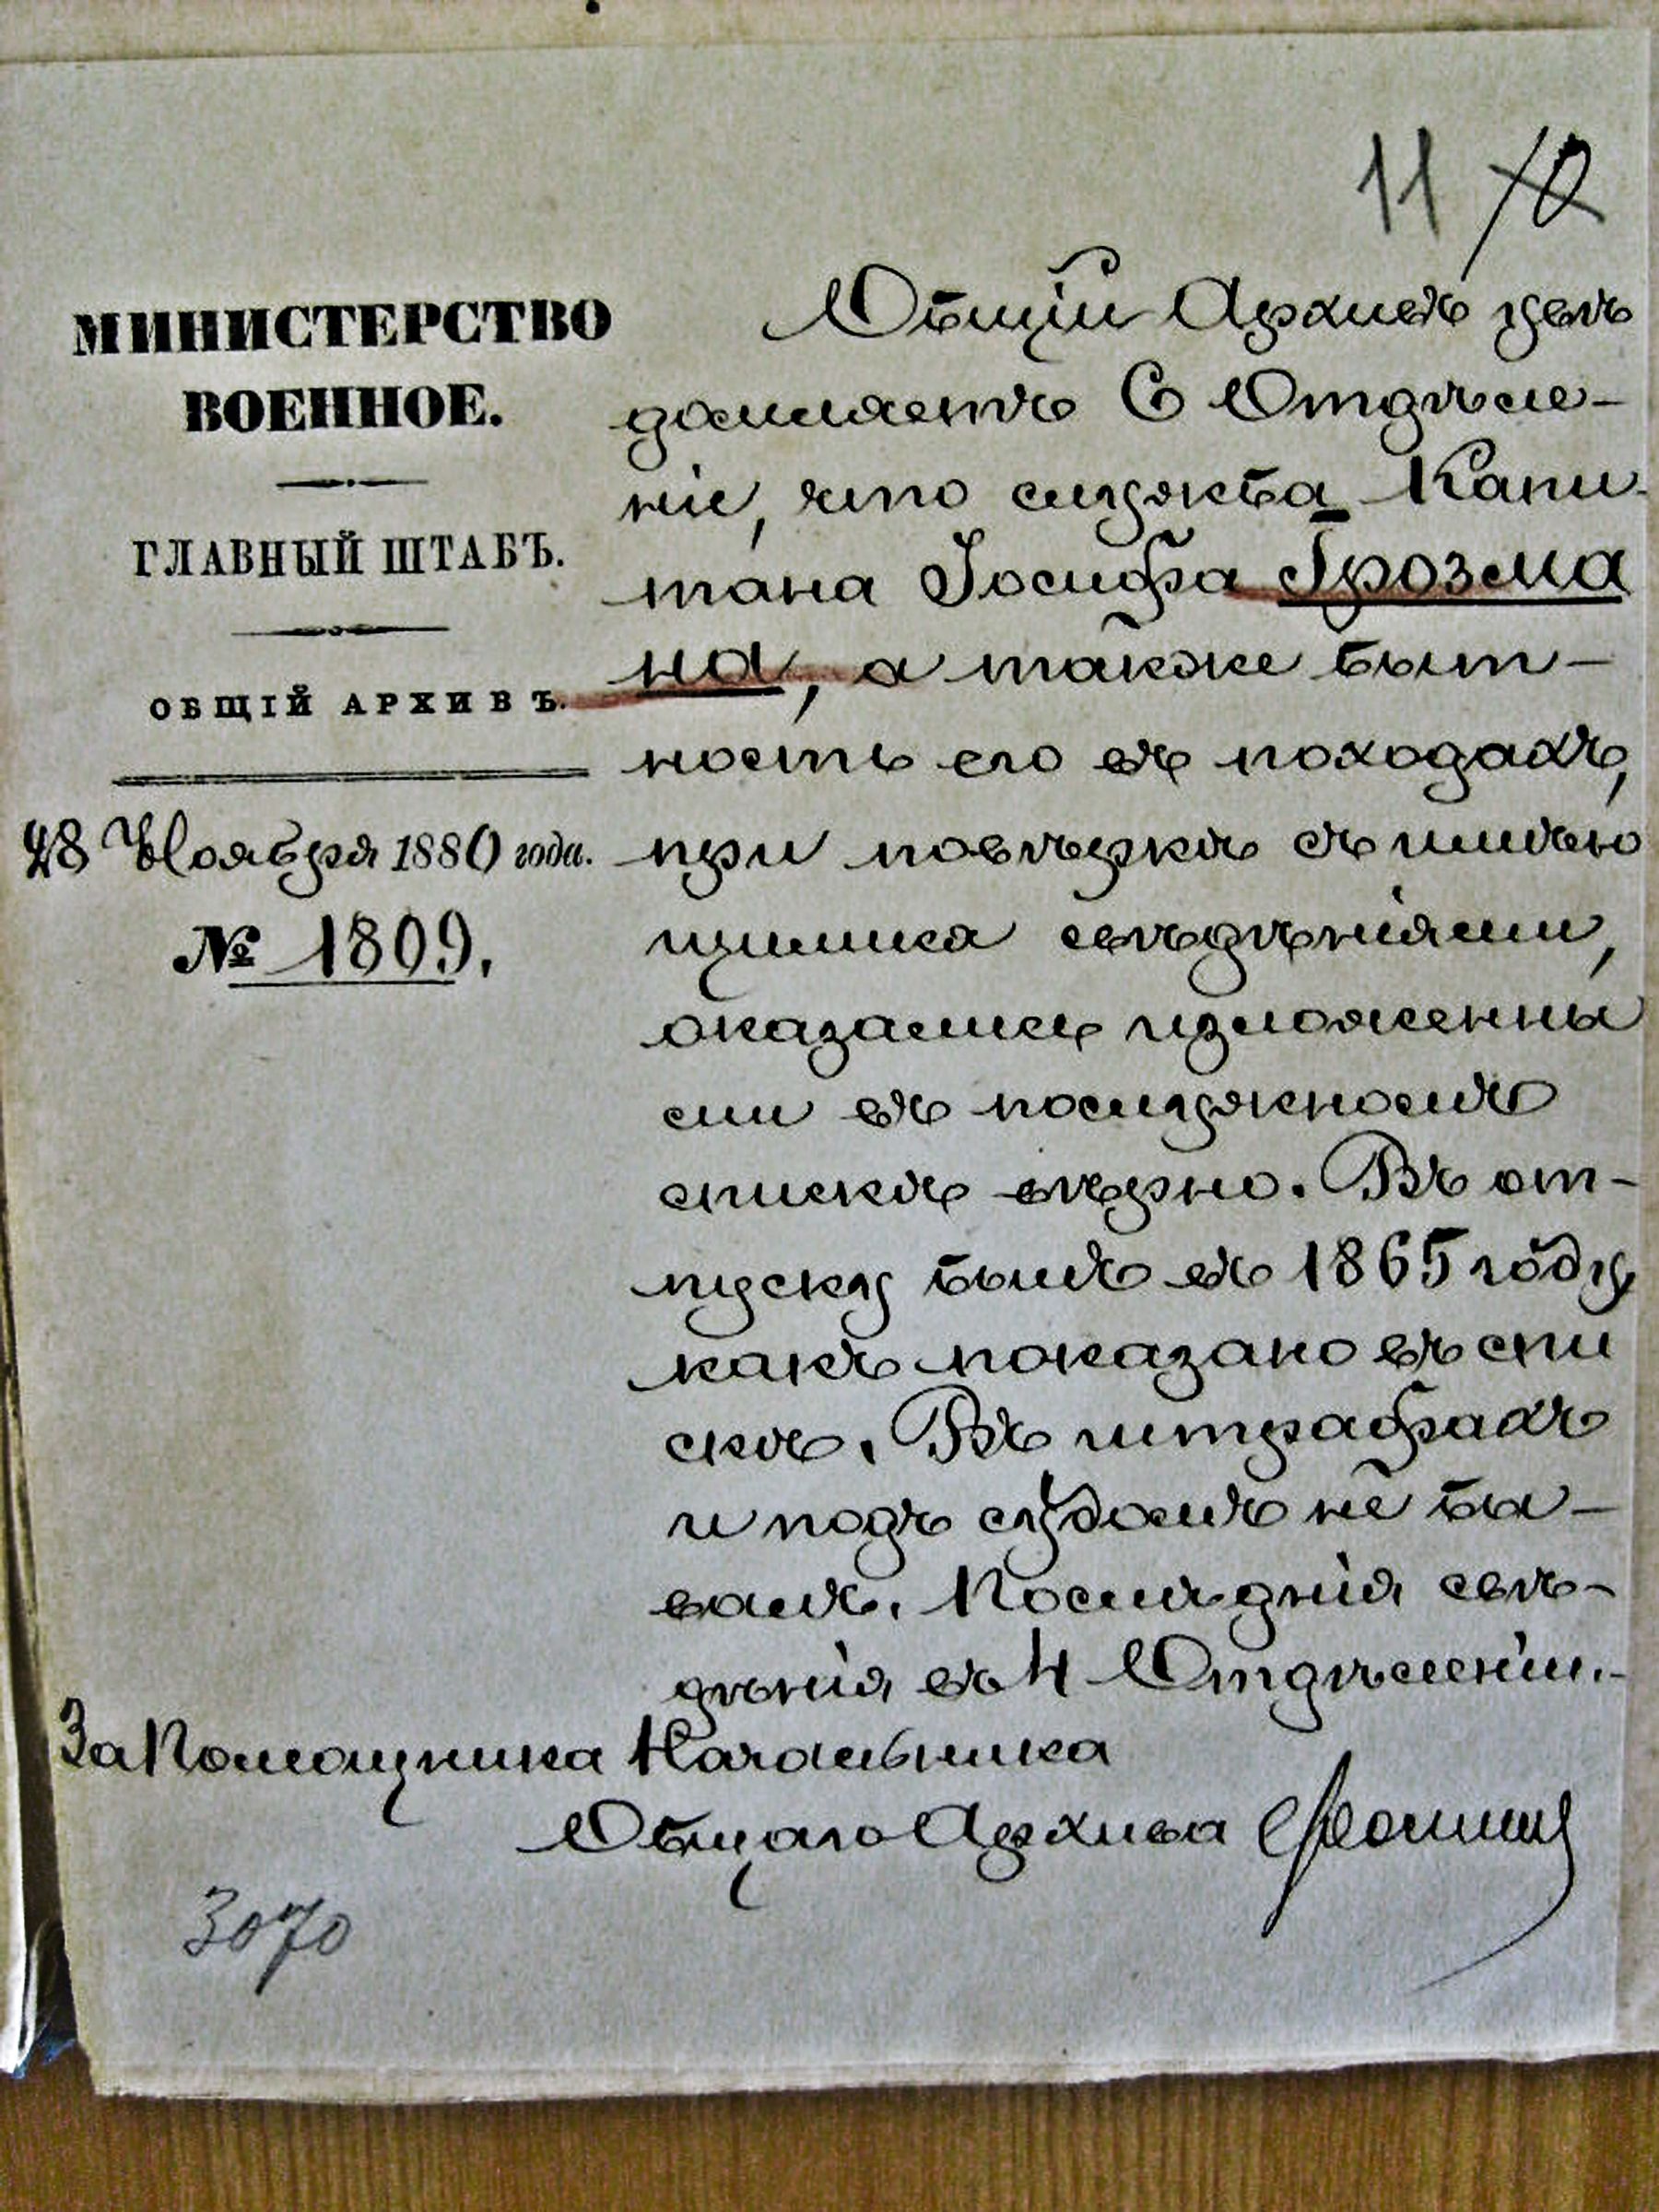 11 10
МИНИСТЕРСТВО
ВОЕННОЕ.
ГЛАВНЫЙ ШТАБЪ.
ОБЩІЙ АРХИВЪ.
28 Ноября 1880 года.
№ 1809.
Общій Архивъ увѣ
домляетъ 6 Отдѣле-
ніе, что служба Капи-
тана Іосифа Грозма
на, а также быт-
ность его въ походахъ,
при повѣркѣ съ имѣю
щимися свѣдѣніями,
оказались изложенны
ми въ послужномъ
спискѣ вѣрно. Въ от-
пуску былъ въ 1865 году,
какъ показано въ спи
скѣ. Въ штрафахъ
и подъ судомъ не бы-
валъ. Послѣднія свѣ-
дѣнія въ 4 Отдѣленіи.-
За Помощника Начальника
Общаго Архива
3070